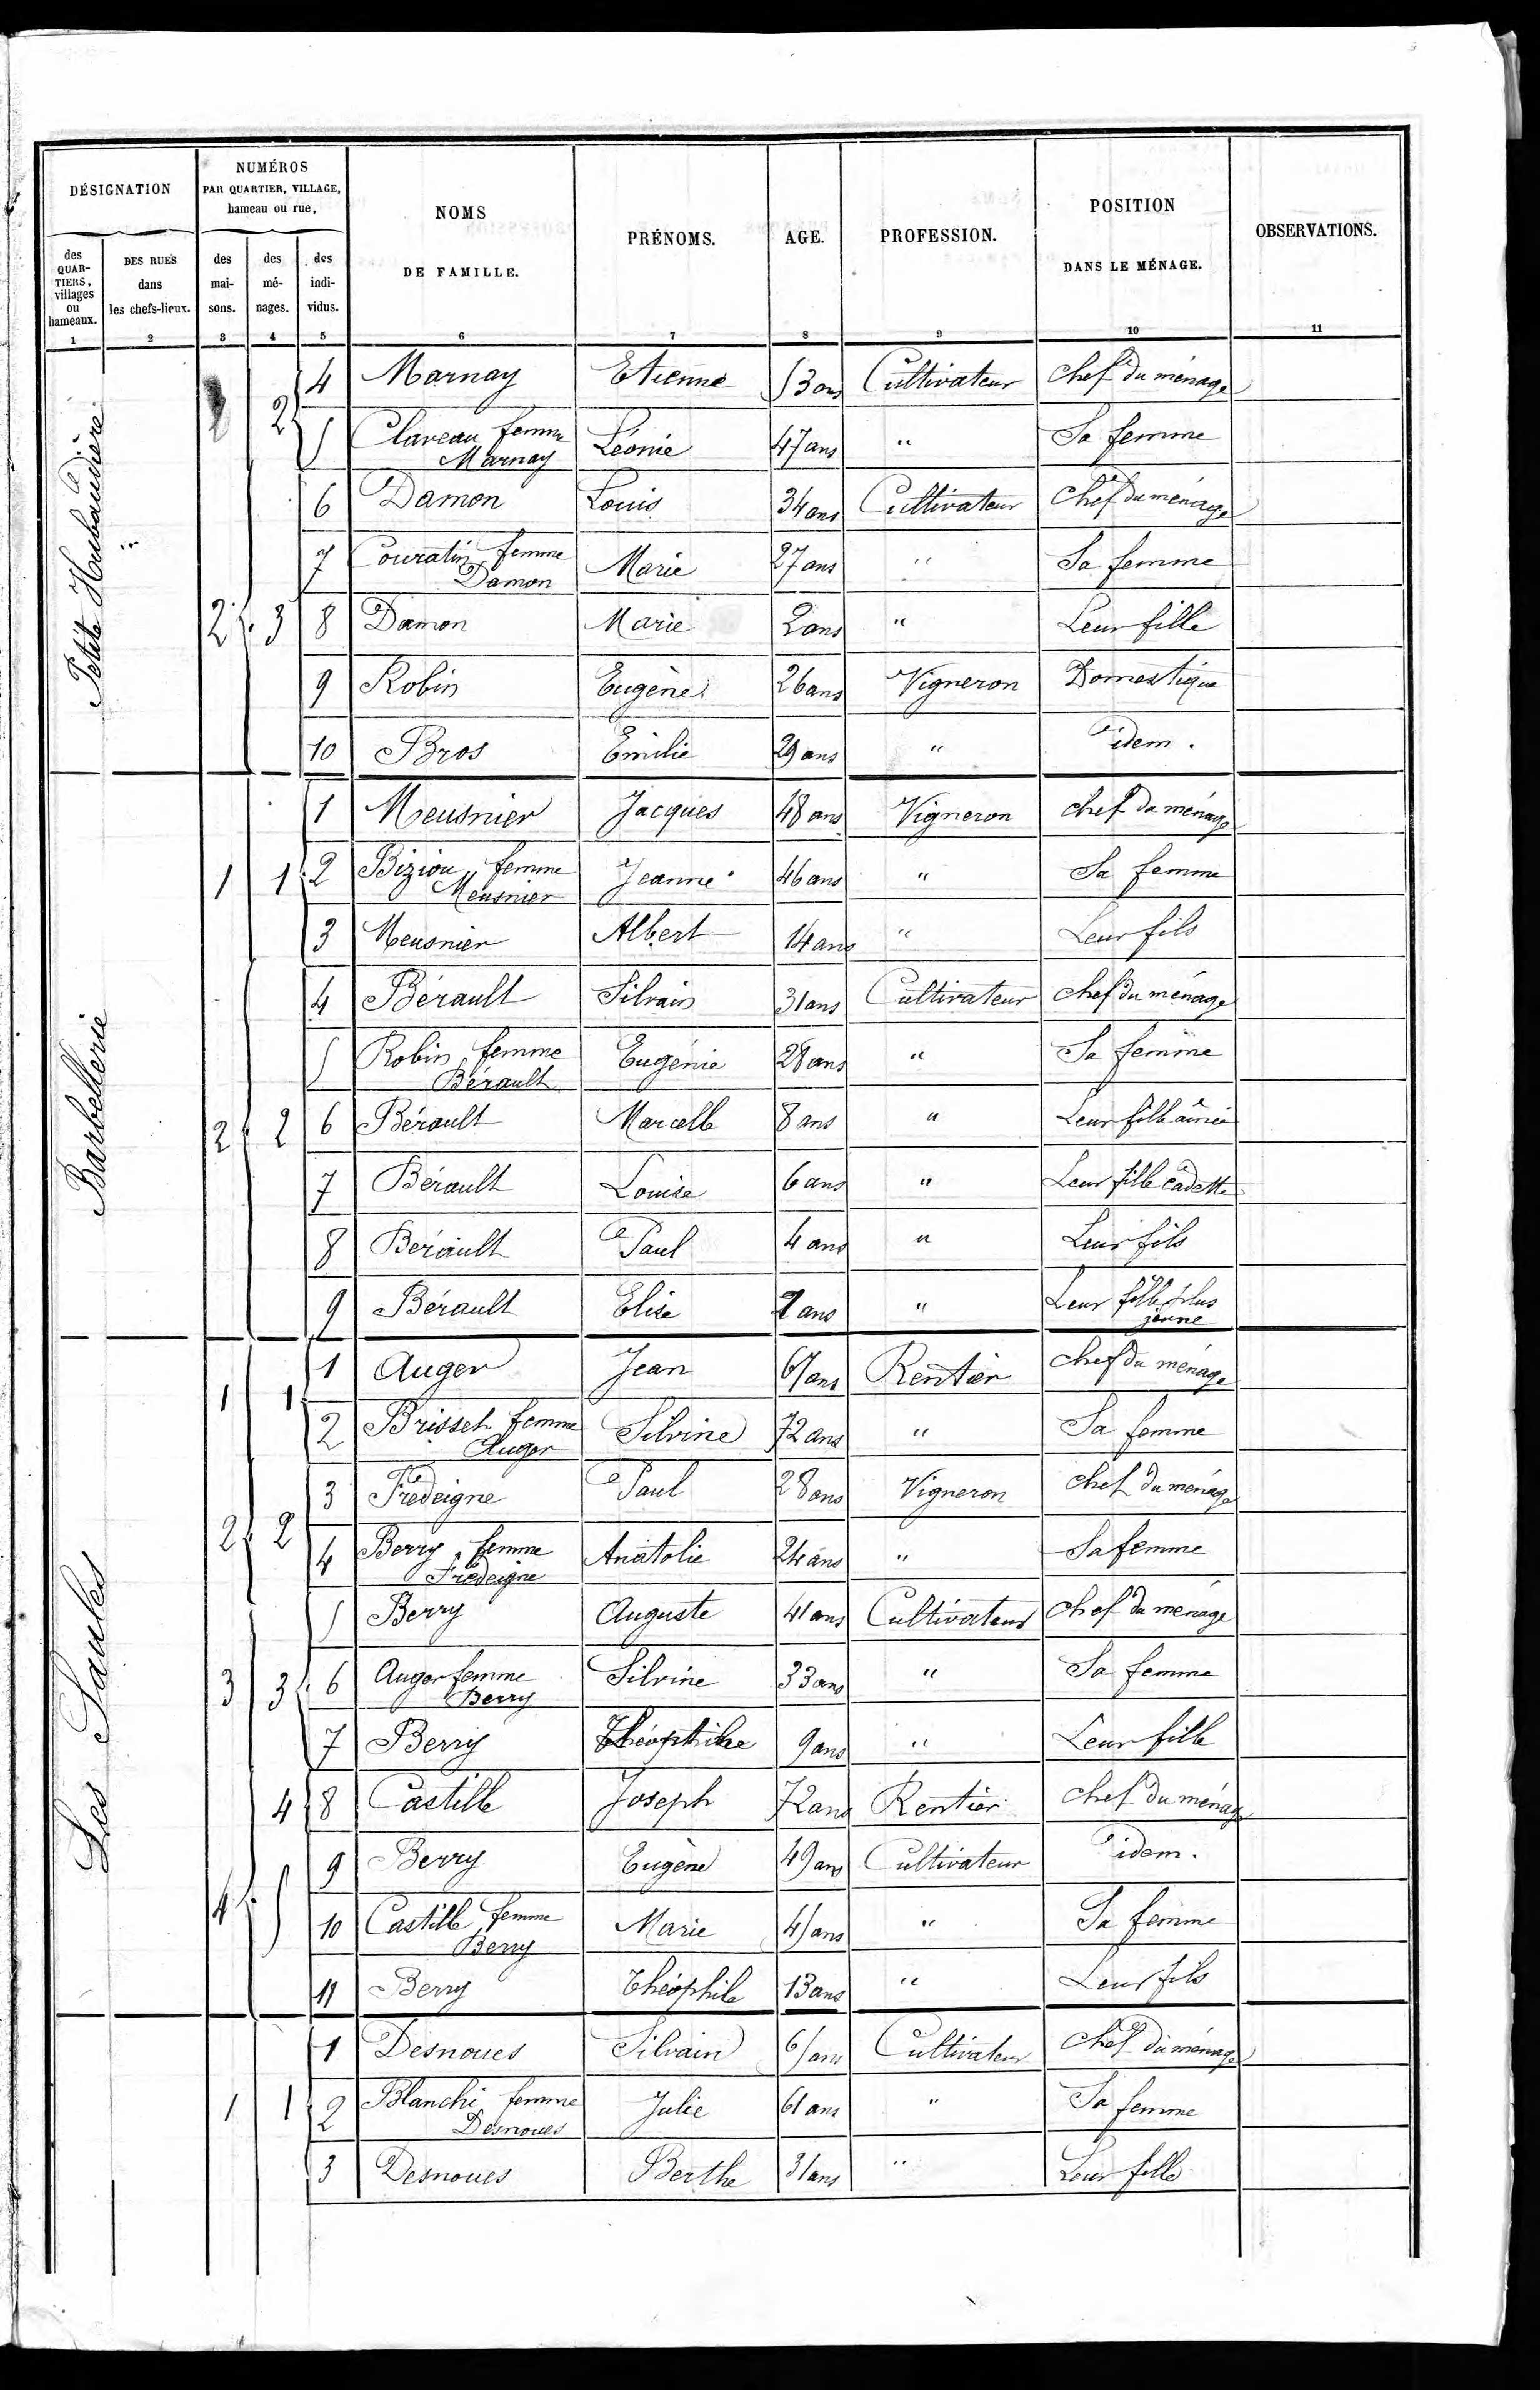 DÉSIGNATION
NUMÉROS
PAR QUARTIER, VILLAGE,
hameau ou rue,
NOMS
DE FAMILLE.
PRÉNOMS.
AGE.
PROFESSION.
POSITION
DANS LE MÉNAGE.
OBSERVATIONS.
des
QUAR-
TIERS,
villages
ou
hameaux.
DES RUES
dans
les chefs-lieux.
des
mai-
sons.
des
mé-
nages.
des
indi-
vidus.
1 2 3 4 5 6 7 8 9 10 11
Petite
2 4 Marnay Etienne 53 ans Cultivateur Chef du ménage
5 Claveau femme Léonie 47 ans " Sa femme
Marnay
6 Damon Louis 34 ans Cultivateur Chef du ménage
7 Couratin femme Marie 27 ans " Sa femme
Damon
2 3 8 Damon Marie 2 ans " Leur fille
9 Robin Eugène 26 ans Vigneron Domestique
10 Bros Emilie 29 ans " idem.
Barbellerie
1 Meusnier Jacques 48 ans Vigneron chef du ménage
1 1 2 Biziou femme Jeanne 46 ans " Sa femme
Meusnier
3 Meusnier Albert 14 ans " Leur fils
4 Bérault Silvain 31 ans Cultivateur chef du ménage
5 Robin femme Eugénie 28 ans " Sa femme
Bérault
2 2 6 Bérault Marcelle 8 ans " Leur fille aînée
7 Bérault Louise 6 ans " Leur fille cadette
8 Bérault Paul 4 ans " Leur fils
9 Bérault Elise 2 ans " Leur fille plus
jeune
Les Saules
1 1 1 Auger Jean 67 ans Rentier chef du ménage
2 Brisset femme Silvine 72 ans " Sa femme
Auger
2 2 3 Frédeigne Paul 28 ans Vigneron chef du ménage
4 Berry femme Anatolie 24 ans " Sa femme
Frédeigne
5 Berry Auguste 41 ans Cultivateur Chef du ménage
3 3 6 Auger femme Silvine 33 ans " Sa femme
Berry
7 Berry 9 ans " Leur fille
4 8 Castille Joseph 72 ans Rentier chef du ménage
9 Berry Eugène 49 ans Cultivateur idem.
4 5 10 Castille femme Marie 45 ans " Sa femme
Berry
11 Berry Théophile 13 ans " Leur fils
1 Desnoues Silvain 65 ans Cultivateur chef du ménage
1 1 2 Blanchi femme Julie 61 ans " Sa femme
Desnoues
3 Desnoues Berthe 31 ans " Leur fille